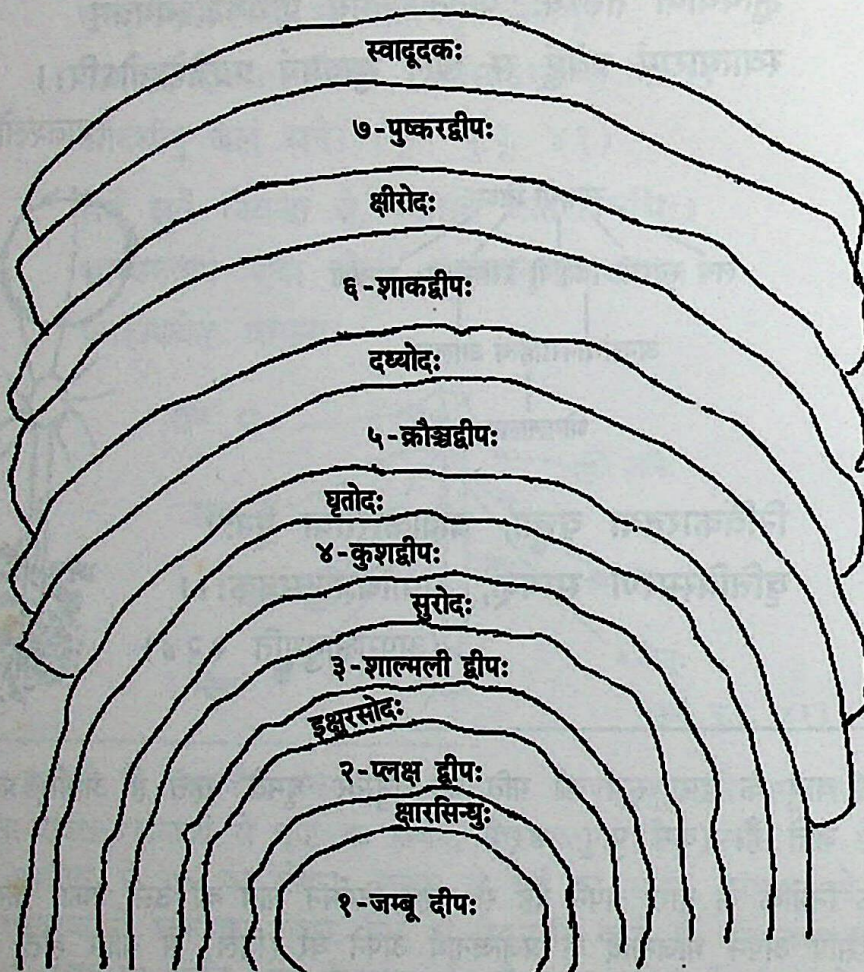 स्वादूदकः
७-पुष्करद्वीपः
क्षीरोदः
६-शाकद्वीपः
दध्योदः
५-क्रौञ्चद्वीपः
घृतोदः
४-कुशद्वीपः
सुरोदः
३-शाल्मली द्वीपः
इक्षुरसोदः
२-प्लक्ष द्वीपः
क्षारसिन्धुः
१-जम्बू दीपः